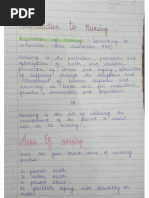 Introduction to Nursing
Definition of nursing (according to
american nurse association ANA):
Nursing is the protection, promotion and
optimization of health and abilities
prevention of illness and injury, alleviation
of suffering through the diagnosis and
treatment of human response and
advocacy in health care for individual,
families, communities and population.
OR
Nursing is the art of utilizing the
environment of the patient to assist
him in his recovery.
Aims Of nursing
are four broad aims of nursing
practice
To promote health
To prevent illness
To restore health
To facilitate coping with disability or
death.